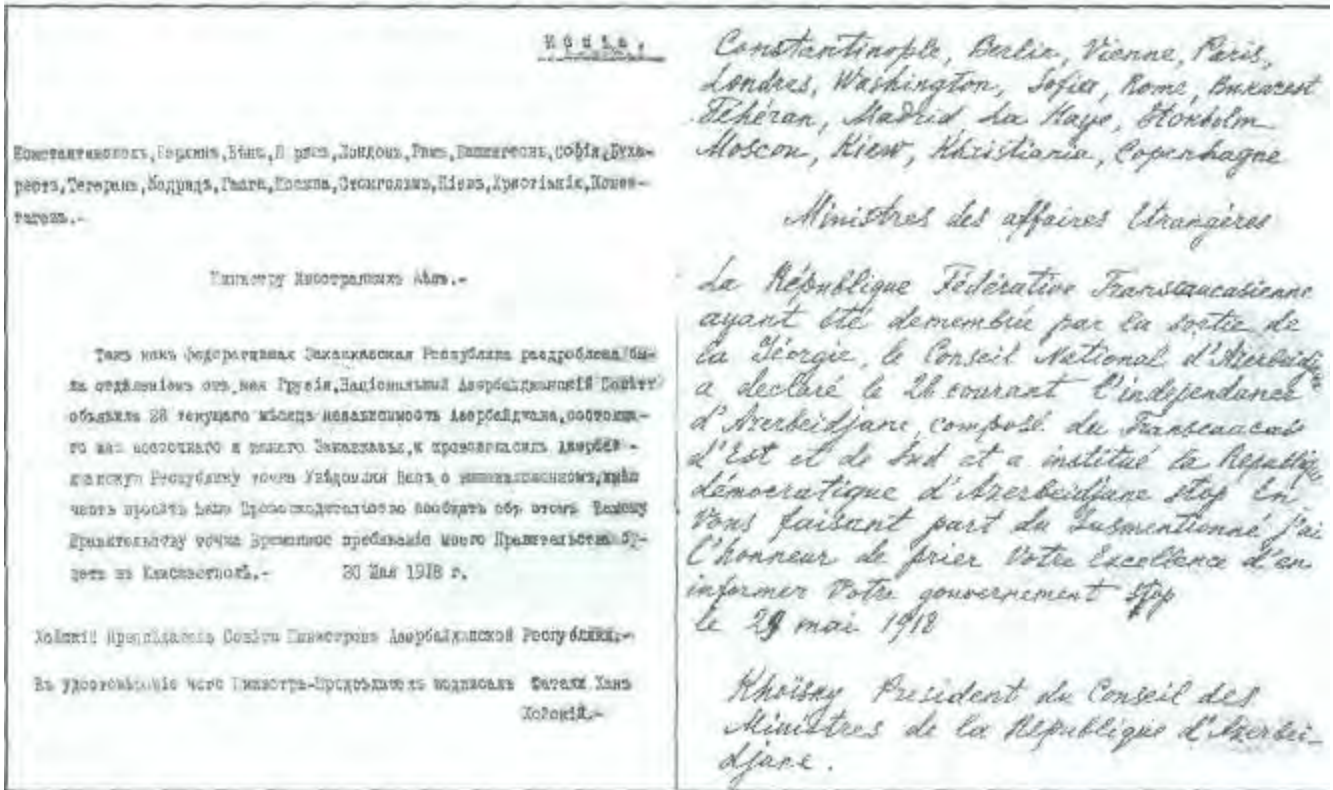 Копія.
Константинополь, Берлинъ, Вѣна, Парижъ, Лондонъ, Римъ, Вашингтонъ, Софія, Буха-
рестъ, Тегеранъ, Мадридъ, Гаага, Москва, Стокгольмъ, Кіевъ, Христіанія, Копен-
гагенъ.-
Министру Иностранныхъ Дѣлъ.-
Такъ какъ Федеративная Закавказская Республика раздроблена бы-
ла отдѣленіемъ отъ нея Грузіи, Національный Азербайджанскій Совѣтъ
объявилъ 28 текущаго мѣсяца независимость Азербайджана, состояща-
го изъ восточнаго и южнаго Закавказья, и провозгласилъ Азербай-
джанскую Республику точка Увѣдомляя Васъ о вышеизложенномъ, имѣю
честь просить Ваше Превосходительство сообщить объ этомъ Вашему
Правительству точка Временное пребываніе моего Правительства бу-
детъ въ Елисаветполѣ.- 30 Мая 1918 г.
Хойскій Предсѣдатель Совѣта Министровъ Азербайджанской Республики.-
Въ удостовѣреніе чего Министръ-Предсѣдатель подписалъ Фатали Ханъ
Хойскій.-
Constantinople, Berlin, Vienne, Paris,
Londres, Washington, Sofia, Rome, Bukarest
Téhéran, Madrid La Haye, Stokholm
Moscou, Kiew, Khristiania, Copenhagne
Ministres des affaires Etrangères
La République Fédérative Transcaucasienne
ayant été demembrée par la sortie de
la Géorgie, le Conseil National d'Azerbeidjane
a declaré le 28 courant l'independance
d'Azerbeidjane, composé du Transcaucas
d'Est et de Sud et a institué la Republique
démocratique d'Azerbeidjane stop En
Vous faisant part du susmentionné j'ai
l'honneur de prier Votre Excellence d'en
informer Votre gouvernement stop
le 29 mai 1918
Khoïsky President du Conseil des
Ministres de la République d'Azerbei-
djane.